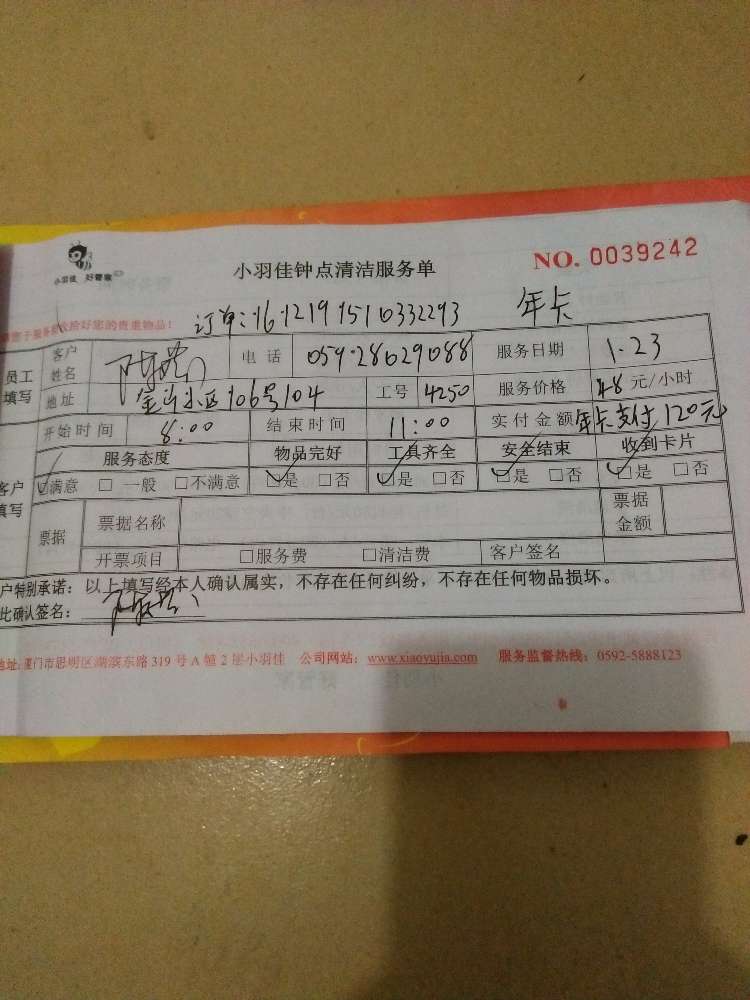 小羽佳 好管家
小羽佳钟点清洁服务单
NO. 0039242
订单:1612191510332293 年卡
收拾好您的贵重物品!
员工填写 客户姓名 电话 059-28029088 服务日期 1.23
地址 金 小区106号104 工号 4250 服务价格 48 元/小时
开始时间 8:00 结束时间 11:00 实付金额 年卡支付120元
客户填写 服务态度 物品完好 工具齐全 安全结束 收到卡片
☑满意 □一般 □不满意 ☑是 □否 ☑是 □否 ☑是 □否 ☑是 □否
票据 票据名称 票据金额
开票项目 □服务费 □清洁费 客户签名
户特别承诺:以上填写经本人确认属实,不存在任何纠纷,不存在任何物品损坏。
此确认签名:
地址:厦门市思明区湖滨东路319号A幢2层小羽佳 公司网站:www.xiaoyujia.com 服务监督热线:0592-5888123